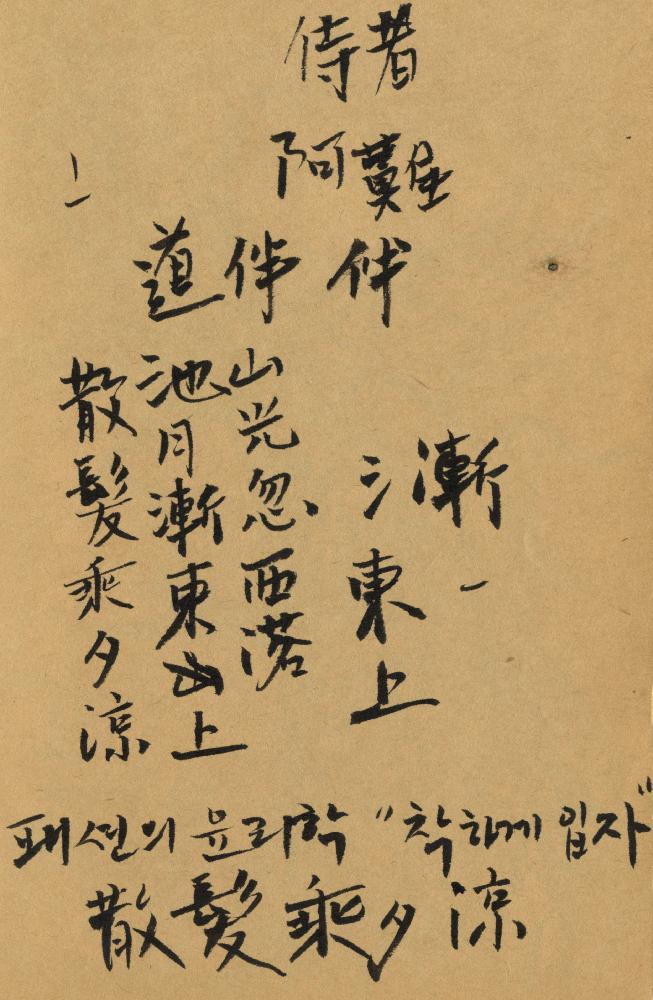 侍者
阿難
道伴 伴
漸
氵東上
山光忽西落
池月漸東上
散髮乘夕涼
패션의 윤리학 "착하게 입자"
散髮乘夕涼